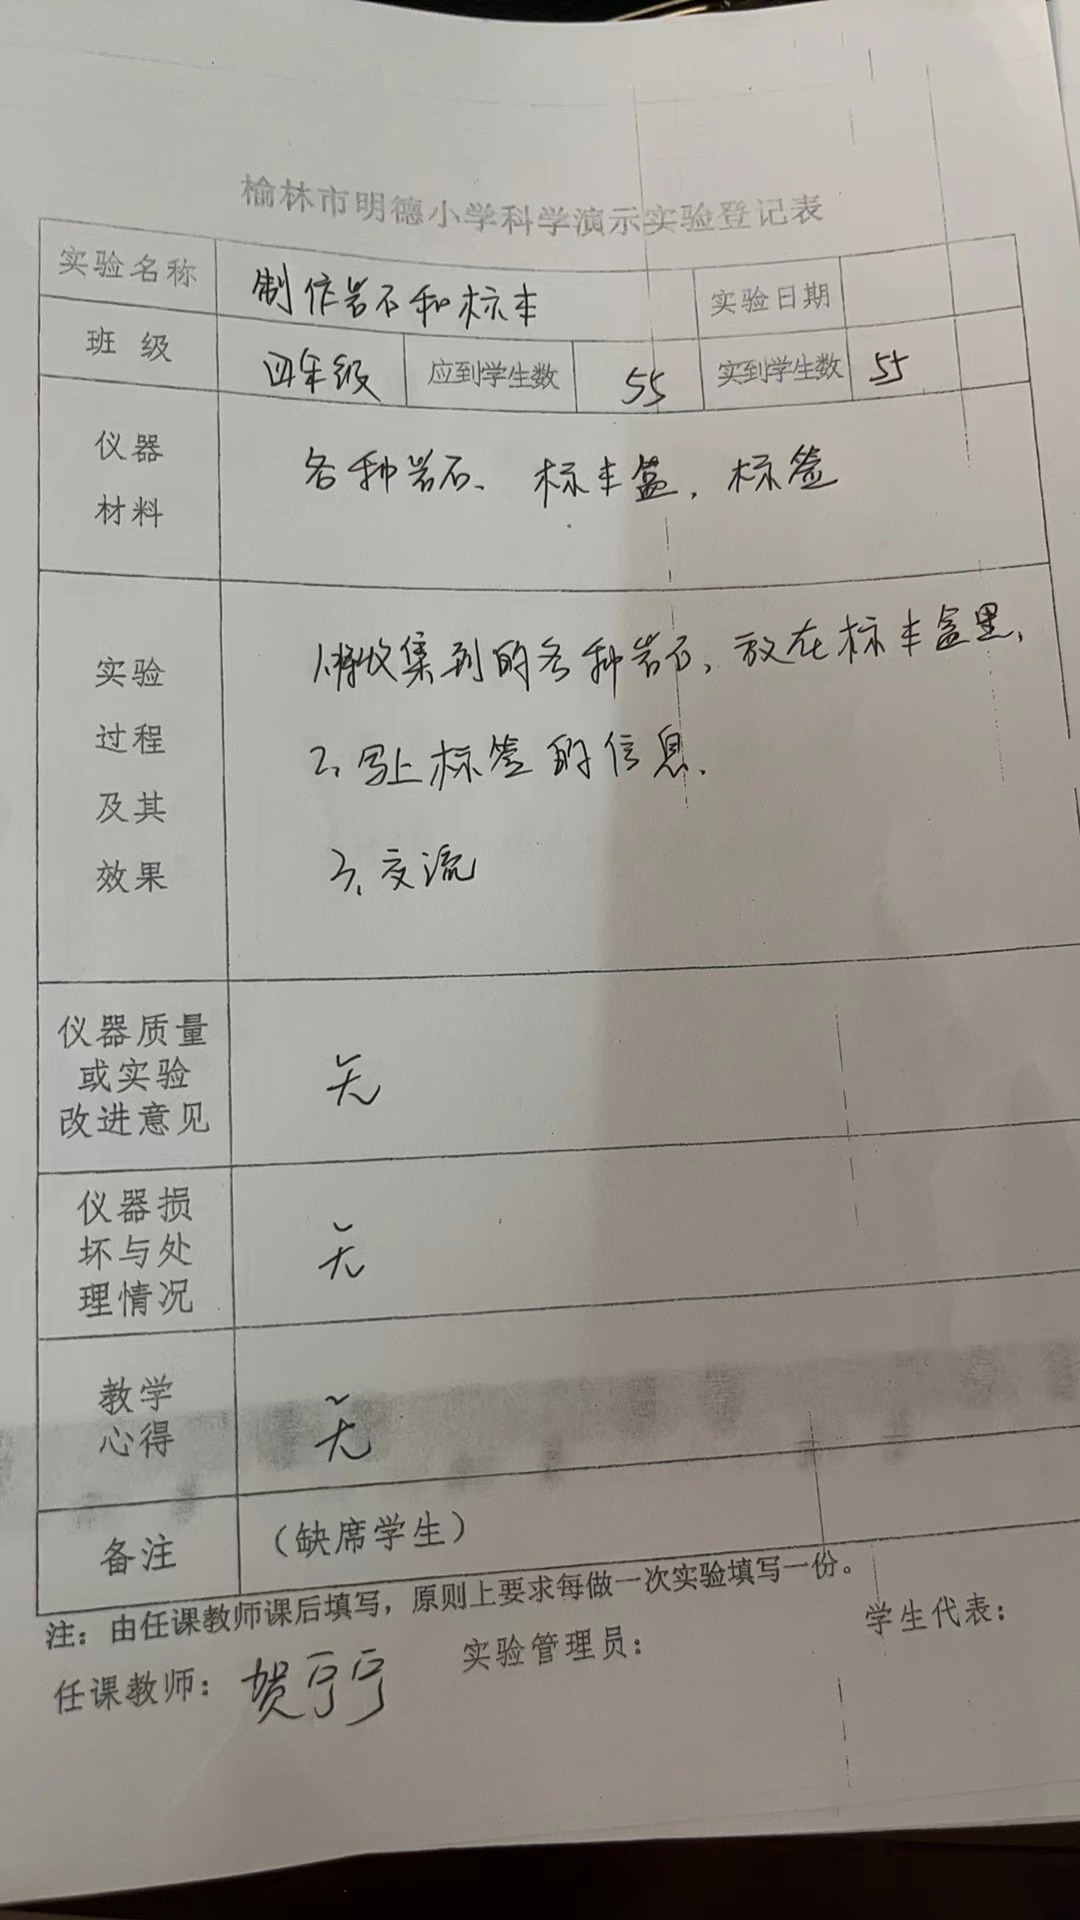 榆林市明德小学科学演示实验登记表
实验名称 制作岩石和标本 实验日期
班 级 四年级 应到学生数 55 实到学生数 55
仪器
材料
各种岩石、标本盒,标签
实验
过程
及其
效果
1.将收集到的各种岩石,放在标本盒里、
2、写上标签的信息、
3、交流
仪器质量
或实验
改进意见
无
仪器损
坏与处
理情况
无
教学
心得
无
备注 (缺席学生)
注:由任课教师课后填写,原则上要求每做一次实验填写一份。
任课教师:贺宁宁 实验管理员: 学生代表: